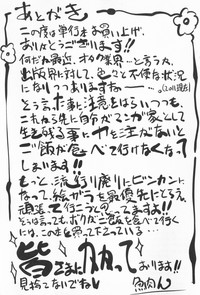 あとがき
この度は単行本お買い上げ、
ありがとうございます!!
何だか最近、オタク業界…と言うか、
出版界に対して、色こと不便な状況
になりつつありますねー……。(2011現在)
そう言った事に注意をはらいつつも、
これから先に自分がマンガ家として
生き残る事にも力を注がないと
ご飯が食べて行けなくなって
しまいます!!
もっと、流行り廃りにビンカンに
なって、絵がらも最優先にとらえ、
頑張って行こうと思ってます!!
そうは言っても、ボクがご飯を食べて行く
には、この本を買って下さっている
皆さまに助かって
おります!!
見捨てないでね
魚肉ん